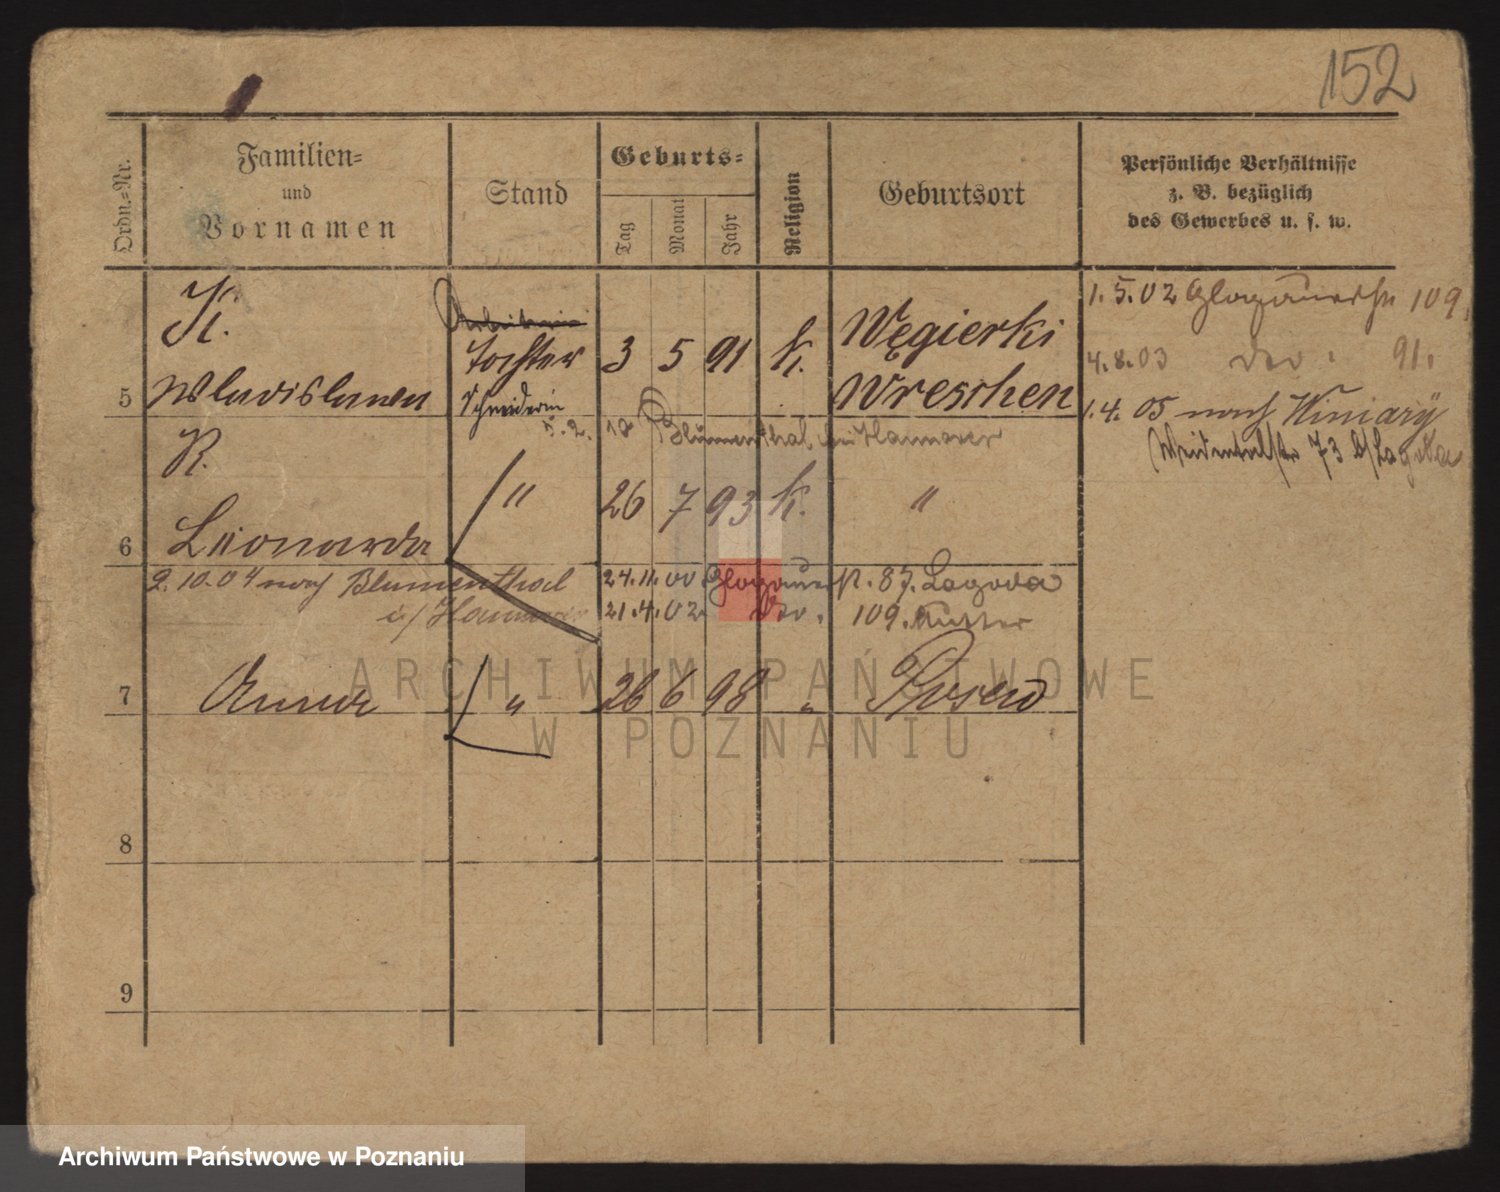 152
Ordn.-Nr.
Familien-
und
Vornamen
Stand
Geburts-
Tag
Monat
Jahr
Religion
Geburtsort
Persönliche Verhältnisse
z. B. bezüglich
des Gewerbes u. s. w.
K.
5 Wladislawa
Arbeiterin
Tochter
Schneiderin
3 5 91 k.
Węgierki
Wreschen
1.5.02 Glogauerstr 109.
4.8.03 dto. 91.
1.4.05 nach Winiary
73 b/Lagoda
5.2. 10 Blumenthal bei Hannover
R.
6 Leonarda " 26 7 93 k. "
9.10.04 nach Blumenthal
i/Hannover
24.11.00. Glogauerstr. 87. Lagoda
21.4.02. dto. 109. Mutter
7 Anna " 26 6 98 " Posen
8
9
ARCHIWUM PAŃSTWOWE
W POZNANIU
Archiwum Państwowe w Poznaniu